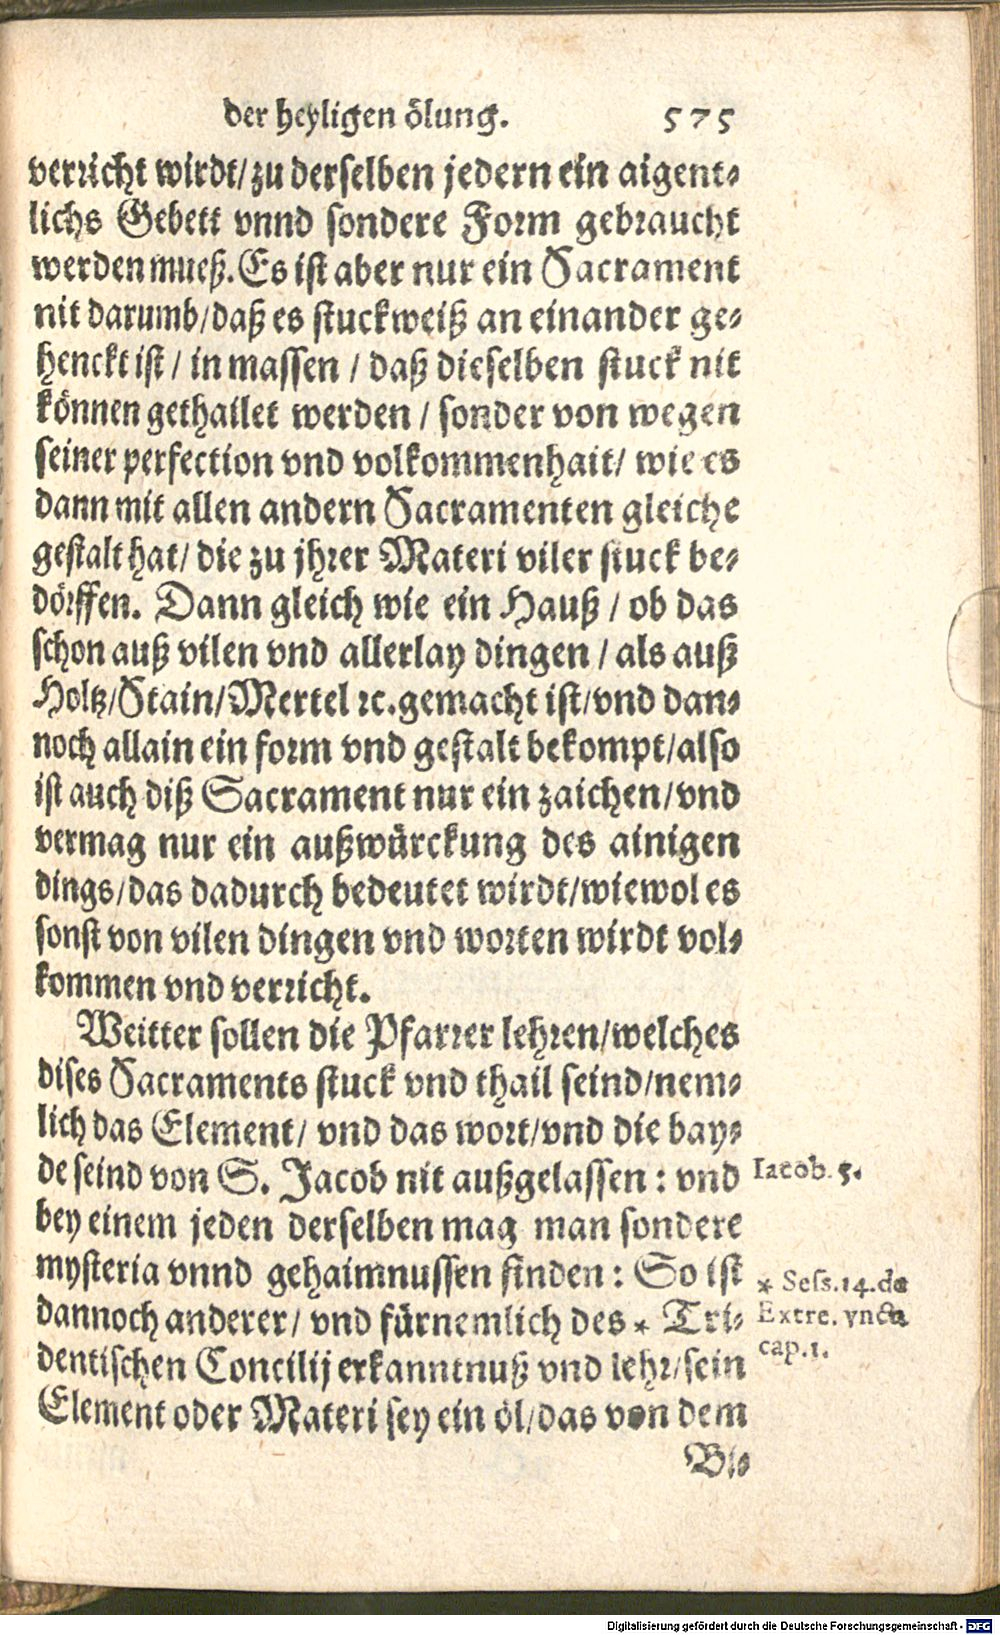 der heyligen ölung. 575
verricht wirdt/ zu derselben jedern ein aigent-
lichs Gebett vnnd sondere Form gebraucht
werden mueß. Es ist aber nur ein Sacrament
nit darumb/ daß es stuckweiß an einander ge-
henckt ist / in massen / daß dieselben stuck nit
können gethailet werden / sonder von wegen
seiner perfection vnd volkommenhait/ wie es
dann mit allen andern Sacramenten gleiche
gestalt hat/ die zu jhrer Materi viler stuck be-
dörffen. Dann gleich wie ein Hauß / ob das
schon auß vilen vnd allerlay dingen / als auß
Holtz/Stain/Mertel ꝛc. gemacht ist/vnd dan-
noch allain ein form vnd gestalt bekompt/also
ist auch diß Sacrament nur ein zaichen/vnd
vermag nur ein außwürckung des ainigen
dings/das dadurch bedeutet wirdt/wiewol es
sonst von vilen dingen vnd worten wirdt vol-
kommen vnd verricht.
Weitter sollen die Pfarrer lehren/welches
dises Sacraments stuck vnd thail seind/nem-
lich das Element/ vnd das wort/vnd die bay-
de seind von S. Jacob nit außgelassen: vnd
Iacob. 5.
bey einem jeden derselben mag man sondere
mysteria vnnd gehaimnussen finden: So ist
dannoch anderer/ vnd fürnemlich des * Tri-
dentischen Concilij erkanntnuß vnd lehr/sein
Element oder Materi sey ein öl/das von dem
* Sess.14.de
Extre. vncta
cap.1.
Bi-
Digitalisierung gefördert durch die Deutsche Forschungsgemeinschaft - DFG